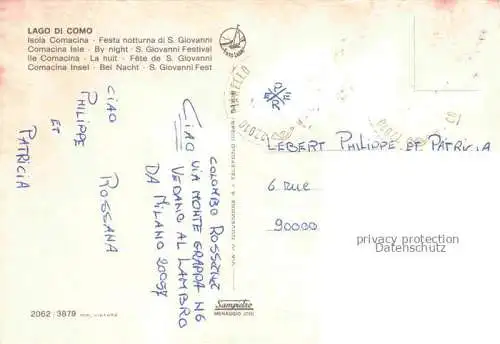 LAGO DI COMO
Isola Comacina - Festa notturna di S. Giovanni
Comacina Isle - By night - S. Giovanni Festival
Ile Comacina - La nuit - Fête de S. Giovanni
Comacina Insel - Bei Nacht - S. Giovanni Fest
CIAO
PHILIPPE
ET
PATRICIA
ROSSANA
COLOMBO ROSSANA
VIA MONTE GRAPPA N6
VEDANO AL LAMBRO
DA MILANO 20057
CIAO
LEBERT PHILIPPE ET PATRICIA
6 RUE
90000
privacy protection
Datenschutz
2062 - 3879
Sampietro
MENAGGIO